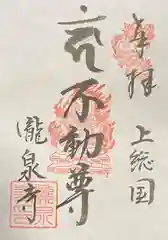 奉拝
上総国
不動尊
瀧泉寺